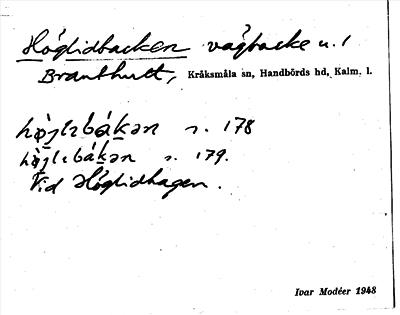 Höglidbacken vägbacke u. 1
Branthult, Kråksmåla sn, Handbörds hd, Kalm. l.
hø̀jlɪbákən s. 178
hø̀jlɪbákən s. 179.
Vid Höglidhagen.
Ivar Modéer 1948